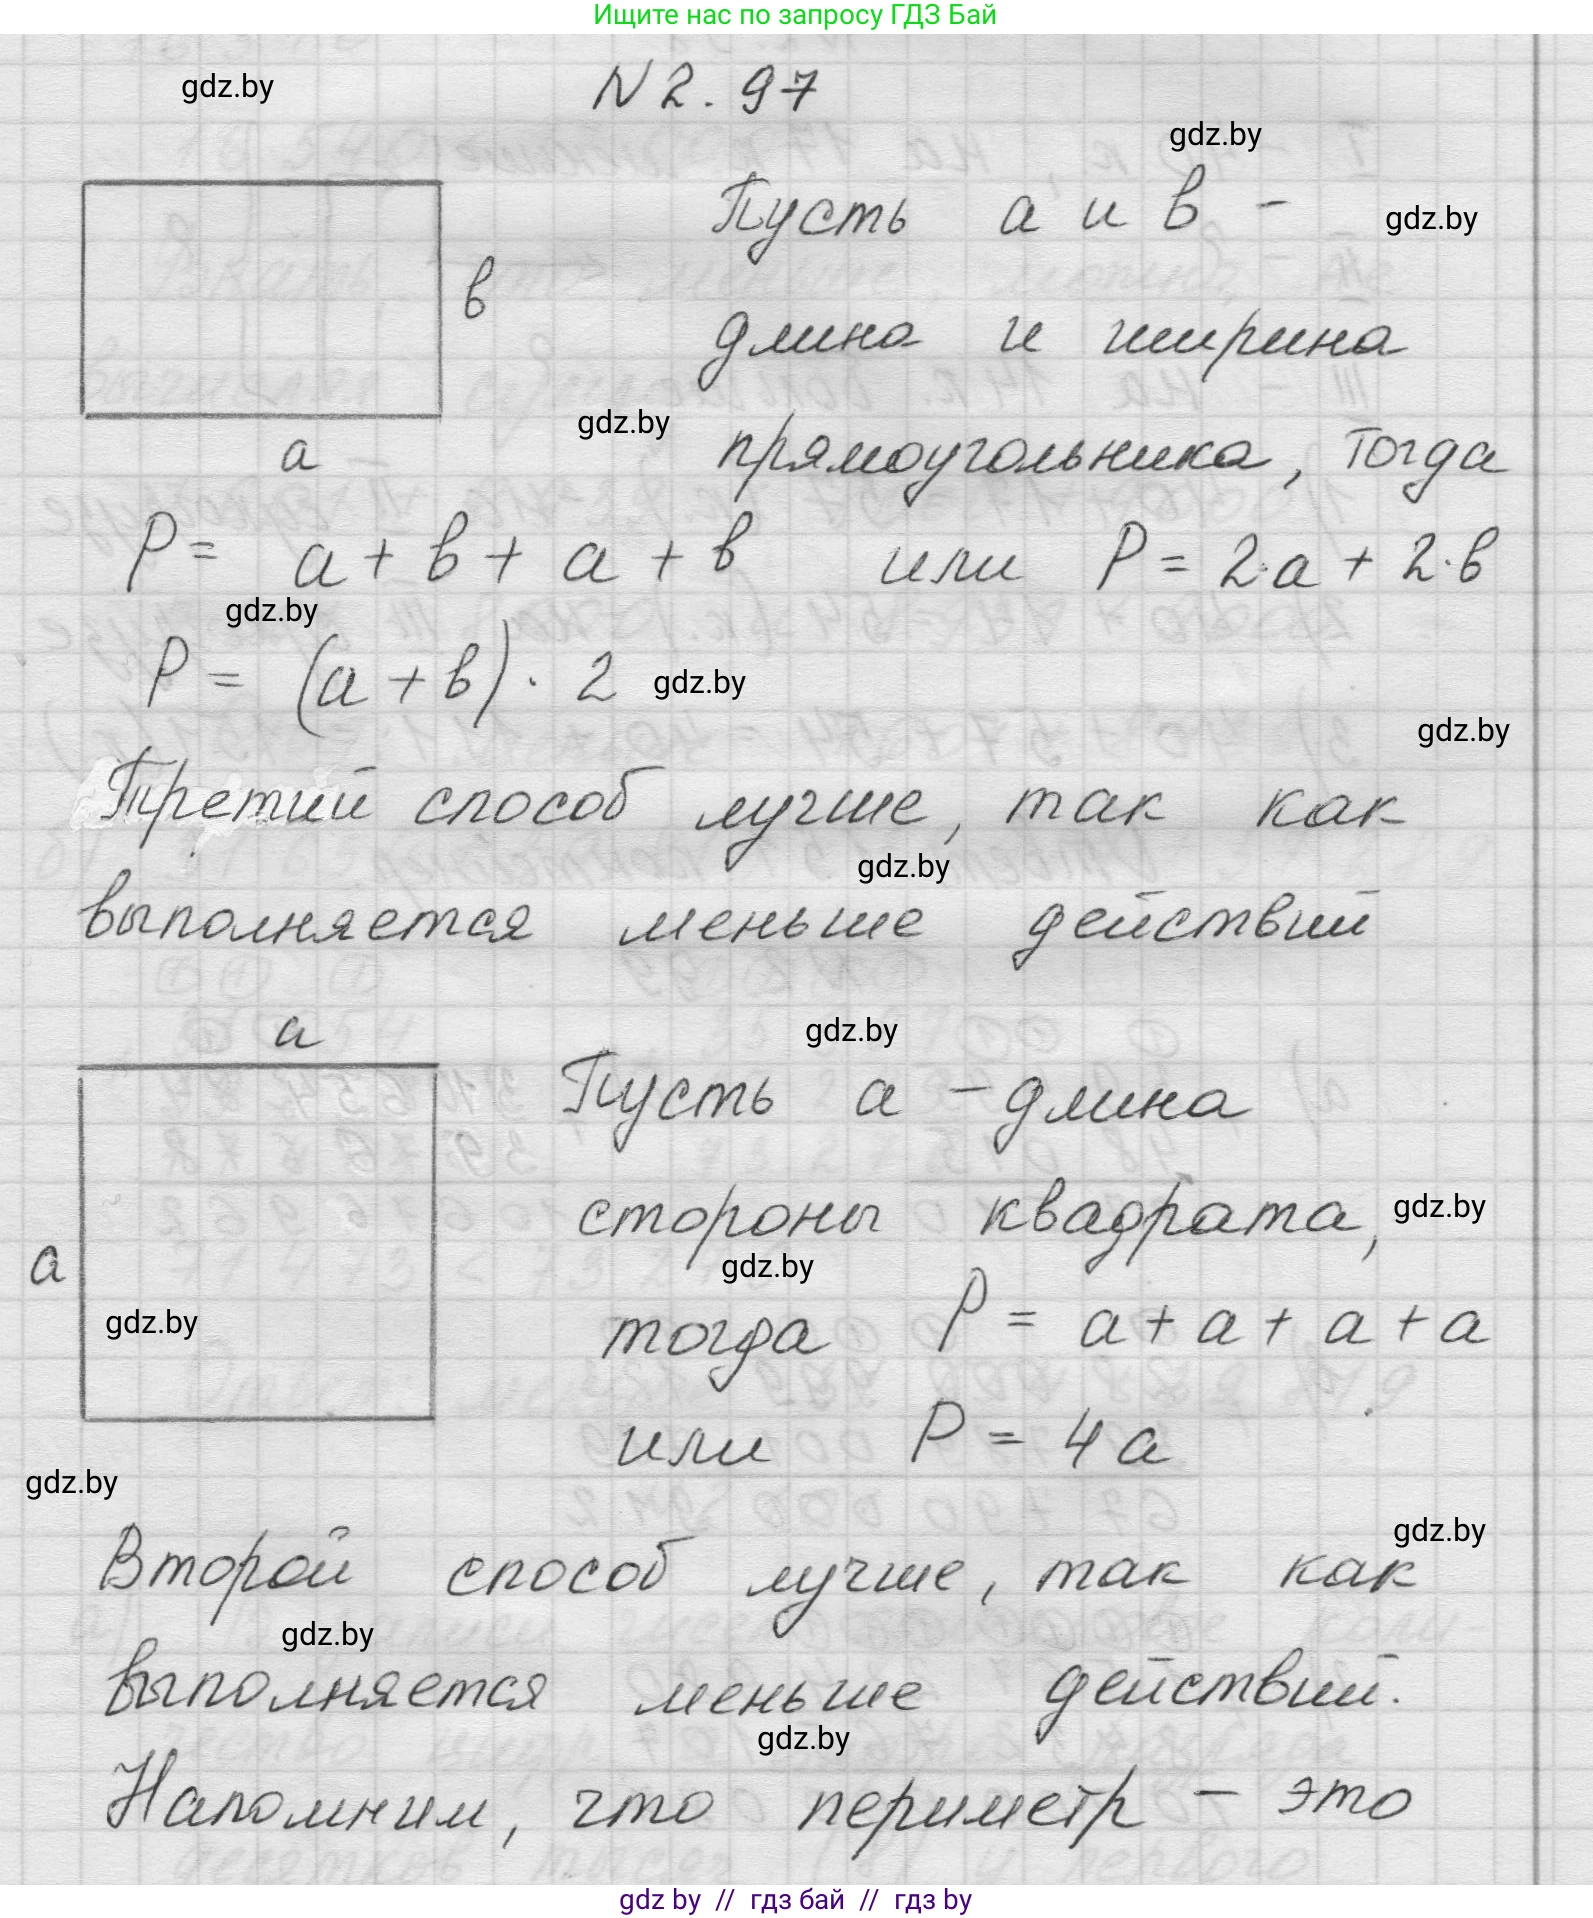 Ищите нас по запросу ГДЗ Бай
gdz.by
N 2. 97
gdz.by
Пусть а и в -
gdz.by
в
длина и ширина
gdz.by
а
прямоугольника, тогда
P = а + в + а + в или P = 2·а + 2·в
gdz.by
P = (а + в) · 2
gdz.by
gdz.by
Третий способ лучше, так как
gdz.by
выполняется меньше действий
а
gdz.by
Пусть а - длина
стороны квадрата,
gdz.by
gdz.by
а
gdz.by
тогда P = а + а + а + а
или P = 4а
gdz.by
gdz.by
Второй способ лучше, так как
gdz.by
выполняется меньше действий.
gdz.by
Напомним, что периметр - это
gdz by // гдз бай // гдз by